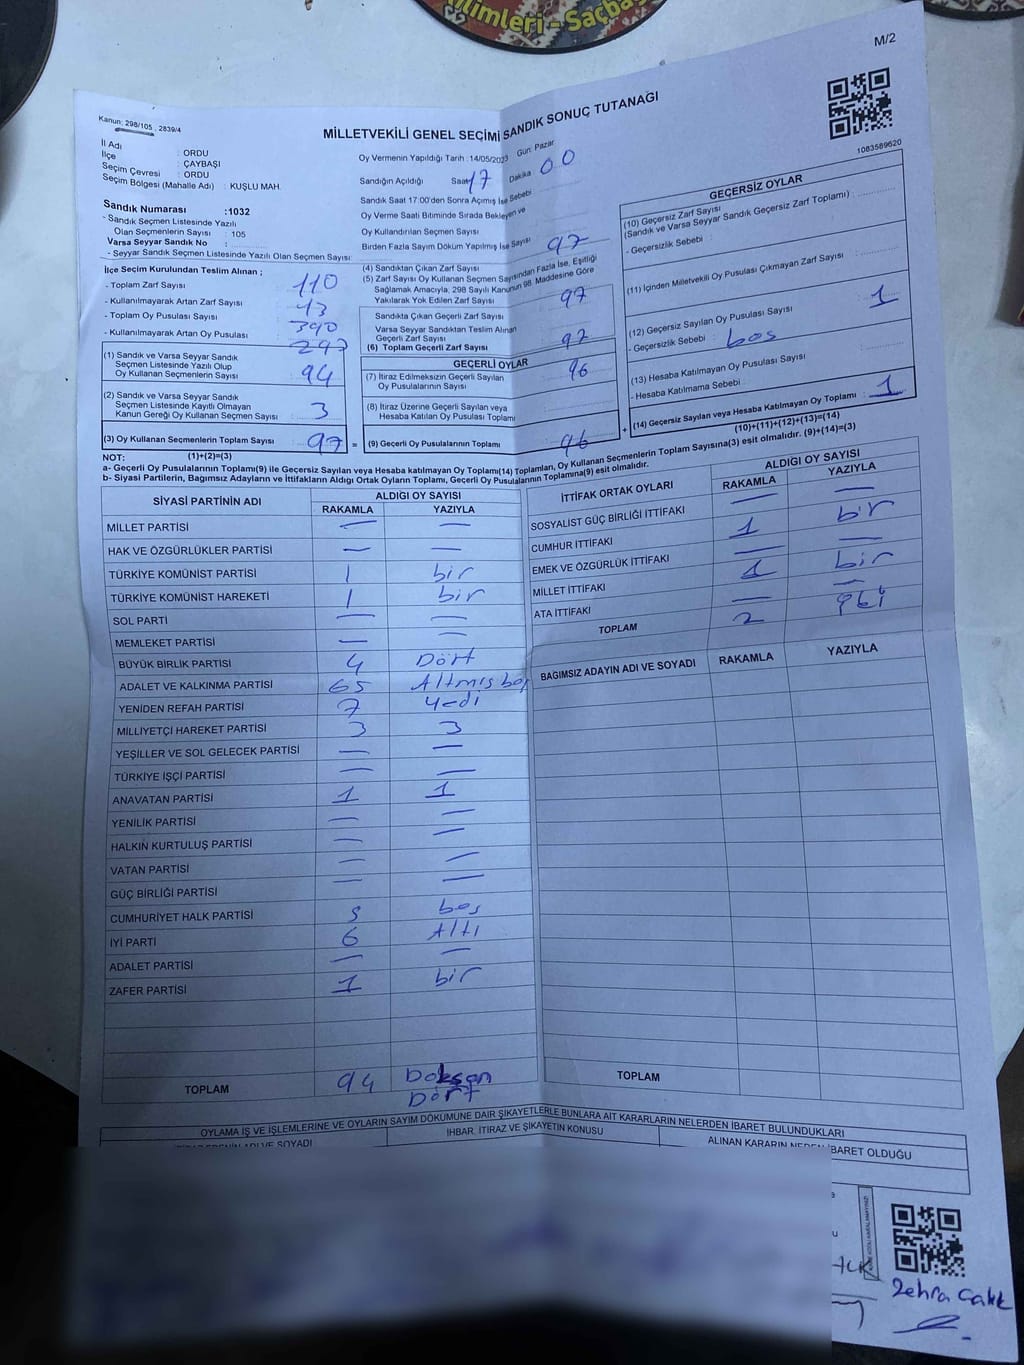 ilimleri - Saçba
M/2
Kanun: 298/105, 2839/4
MİLLETVEKİLİ GENEL SEÇİMİ SANDIK SONUÇ TUTANAĞI
1083589620
İl Adı : ORDU
İlçe : ÇAYBAŞI
Seçim Çevresi : ORDU
Seçim Bölgesi (Mahalle Adı) : KUŞLU MAH.
Sandık Numarası :1032
- Sandık Seçmen Listesinde Yazılı
Olan Seçmenlerin Sayısı : 105
Varsa Seyyar Sandık No :
- Seyyar Sandık Seçmen Listesinde Yazılı Olan Seçmen Sayısı:
Oy Vermenin Yapıldığı Tarih : 14/05/2023 Gün: Pazar
Sandığın Açıldığı Saat 17 Dakika 00
Sandık Saat 17:00'den Sonra Açılmış İse Sebebi
Oy Verme Saati Bitiminde Sırada Bekleyen ve
Oy Kullandırılan Seçmen Sayısı
Birden Fazla Sayım Döküm Yapılmış İse Sayısı
İlçe Seçim Kurulundan Teslim Alınan ;
- Toplam Zarf Sayısı 110
- Kullanılmayarak Artan Zarf Sayısı 13
- Toplam Oy Pusulası Sayısı 390
- Kullanılmayarak Artan Oy Pusulası 293
(1) Sandık ve Varsa Seyyar Sandık
Seçmen Listesinde Yazılı Olup
Oy Kullanan Seçmenlerin Sayısı 94
(2) Sandık ve Varsa Seyyar Sandık
Seçmen Listesinde Kayıtlı Olmayan
Kanun Gereği Oy Kullanan Seçmen Sayısı 3
(3) Oy Kullanan Seçmenlerin Toplam Sayısı 97
(1)+(2)=(3)
(4) Sandıktan Çıkan Zarf Sayısı 97
(5) Zarf Sayısı Oy Kullanan Seçmen Sayısından Fazla İse, Eşitliği
Sağlamak Amacıyla, 298 Sayılı Kanunun 98. Maddesine Göre
Yakılarak Yok Edilen Zarf Sayısı
Sandıkta Çıkan Geçerli Zarf Sayısı 97
Varsa Seyyar Sandıktan Teslim Alınan
Geçerli Zarf Sayısı
(6) Toplam Geçerli Zarf Sayısı 97
GEÇERLİ OYLAR
(7) İtiraz Edilmeksizin Geçerli Sayılan
Oy Pusulalarının Sayısı 96
(8) İtiraz Üzerine Geçerli Sayılan veya
Hesaba Katılan Oy Pusulası Toplamı
= (9) Geçerli Oy Pusulalarının Toplamı 96 +
GEÇERSİZ OYLAR
(10) Geçersiz Zarf Sayısı
(Sandık ve Varsa Seyyar Sandık Geçersiz Zarf Toplamı)
- Geçersizlik Sebebi :
(11) İçinden Milletvekili Oy Pusulası Çıkmayan Zarf Sayısı
(12) Geçersiz Sayılan Oy Pusulası Sayısı 1
- Geçersizlik Sebebi : boş
(13) Hesaba Katılmayan Oy Pusulası Sayısı
- Hesaba Katılmama Sebebi :
(14) Geçersiz Sayılan veya Hesaba Katılmayan Oy Toplamı : 1
(10)+(11)+(12)+(13)=(14)
NOT:
a- Geçerli Oy Pusulalarının Toplamı(9) ile Geçersiz Sayılan veya Hesaba katılmayan Oy Toplamı(14) Toplamları, Oy Kullanan Seçmenlerin Toplam Sayısına(3) eşit olmalıdır. (9)+(14)=(3)
b- Siyasi Partilerin, Bağımsız Adayların ve İttifakların Aldığı Ortak Oyların Toplamı, Geçerli Oy Pusulalarının Toplamına(9) eşit olmalıdır.
SİYASİ PARTİNİN ADI ALDIĞI OY SAYISI
RAKAMLA YAZIYLA
MİLLET PARTİSİ — —
HAK VE ÖZGÜRLÜKLER PARTİSİ — —
TÜRKİYE KOMÜNİST PARTİSİ 1 bir
TÜRKİYE KOMÜNİST HAREKETİ 1 bir
SOL PARTİ — —
MEMLEKET PARTİSİ — —
BÜYÜK BİRLİK PARTİSİ 4 Dört
ADALET VE KALKINMA PARTİSİ 65 Altmış beş
YENİDEN REFAH PARTİSİ 7 Yedi
MİLLİYETÇİ HAREKET PARTİSİ 3 3
YEŞİLLER VE SOL GELECEK PARTİSİ — —
TÜRKİYE İŞÇİ PARTİSİ — —
ANAVATAN PARTİSİ 1 1
YENİLİK PARTİSİ — —
HALKIN KURTULUŞ PARTİSİ — —
VATAN PARTİSİ — —
GÜÇ BİRLİĞİ PARTİSİ — —
CUMHURİYET HALK PARTİSİ 5 beş
İYİ PARTİ 6 Altı
ADALET PARTİSİ — —
ZAFER PARTİSİ 1 bir
TOPLAM 94 Doksan
Dört
İTTİFAK ORTAK OYLARI ALDIĞI OY SAYISI
RAKAMLA YAZIYLA
SOSYALİST GÜÇ BİRLİĞİ İTTİFAKI — —
CUMHUR İTTİFAKI 1 bir
EMEK VE ÖZGÜRLÜK İTTİFAKI — —
MİLLET İTTİFAKI 1 bir
ATA İTTİFAKI — —
TOPLAM 2 iki
BAĞIMSIZ ADAYIN ADI VE SOYADI RAKAMLA YAZIYLA
TOPLAM
OYLAMA İŞ VE İŞLEMLERİNE VE OYLARIN SAYIM DÖKÜMÜNE DAİR ŞİKAYETLERLE BUNLARA AİT KARARLARIN NELERDEN İBARET BULUNDUKLARI
İHBAR, İTİRAZ VE ŞİKAYETİN KONUSU
ALINAN KARARIN NEDEN İBARET OLDUĞU
Zehra Çalık